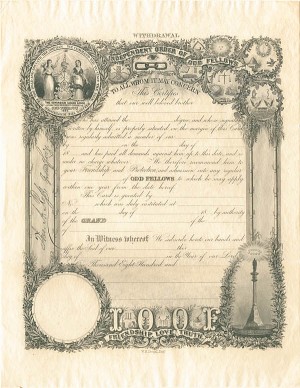 WITHDRAWAL
INDEPENDENT ORDER OF ODD FELLOWS
TO ALL WHOM IT MAY CONCERN
This Certifies
that our well beloved brother
who has attained the degree, and whose signature
written by himself is properly attested on the margin of this Card
was regularly admitted a member of our
on the day of
18 and has paid all demands against him up to this date, and is
under no charge whatever. We therefore recommend him to
your Friendship and Protection, and admission into any regular
of ODD FELLOWS to which he may apply
within one year from the date hereof
This Card is granted by
No. which was duly instituted at
on the day of 18 by authority
of the GRAND of the
In Witness whereof We subscribe our hands and
affix the Seal of our this
day of in the Year of our Lord
One Thousand Eight Hundred and
I·O·O·F
FRIENDSHIP, LOVE, TRUTH